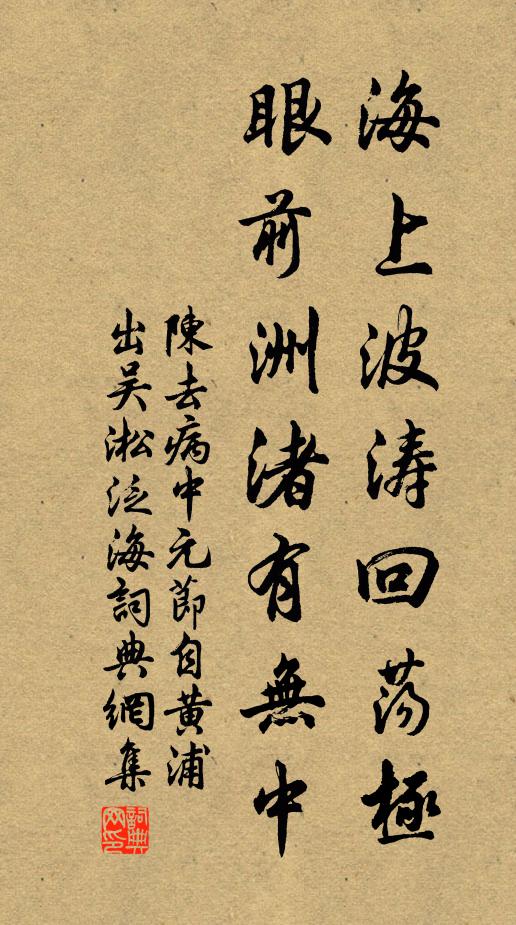 海上波涛回荡極
眼前洲渚有無中
陳去病中元節自黄浦
出吴淞泛海詞典網集
詞典网印